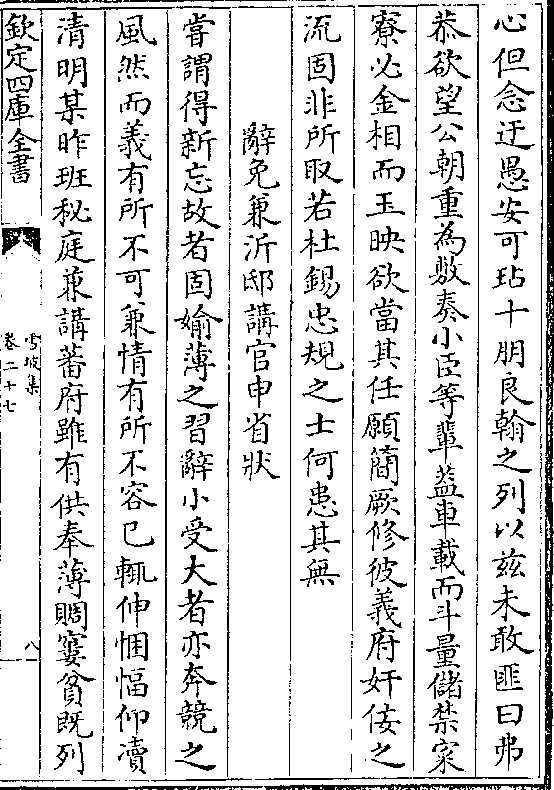 心但念迂愚安可玷十朋良翰之列以兹未敢匪曰弗
恭欲望公朝重為敷奏小臣等輩葢車載而斗量儲禁家
寮必金相而玉映欲當其任願簡厥修彼義府奸佞之
流固非所取若杜錫忠規之士何患其無
辭免兼沂邸講官申省狀
嘗謂得新忘故者固媮薄之習辭小受大者亦奔競之
風然而義有所不可兼情有所不容已輒伸悃愊仰瀆
清明某昨班秘庭兼講蕃府雖有供奉薄賙窶貧既列
欽定四庫全書
雪坡集
卷二十七
八